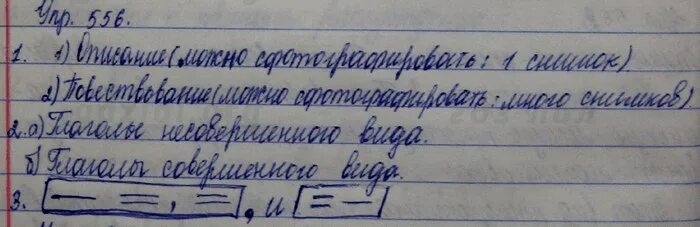 Упр. 556.
1. 1) Описание (можно сфотографировать: 1 снимок)
2) Повествование (можно сфотографировать: много снимков)
2. а) Глаголы несовершенного вида.
б) Глаголы совершенного вида.
3. [— =, =], и [= —]